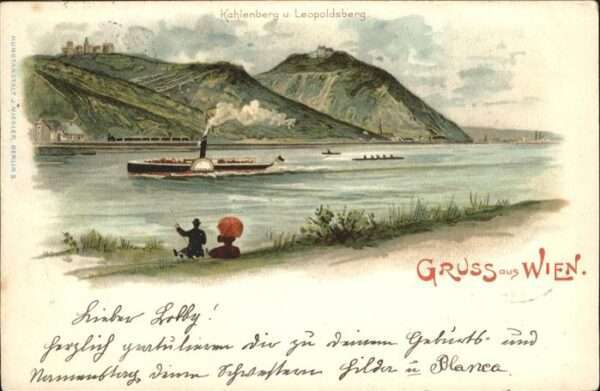 Kahlenberg u Leopoldsberg.
KUNSTANSTALT J. MIESLER, BERLIN S.
GRUSS aus WIEN.
Lieber Lobby!
herzlich gratulieren Dir zu deinem Geburts- und
Namenstag deine Schwestern Hilda u Blanca.